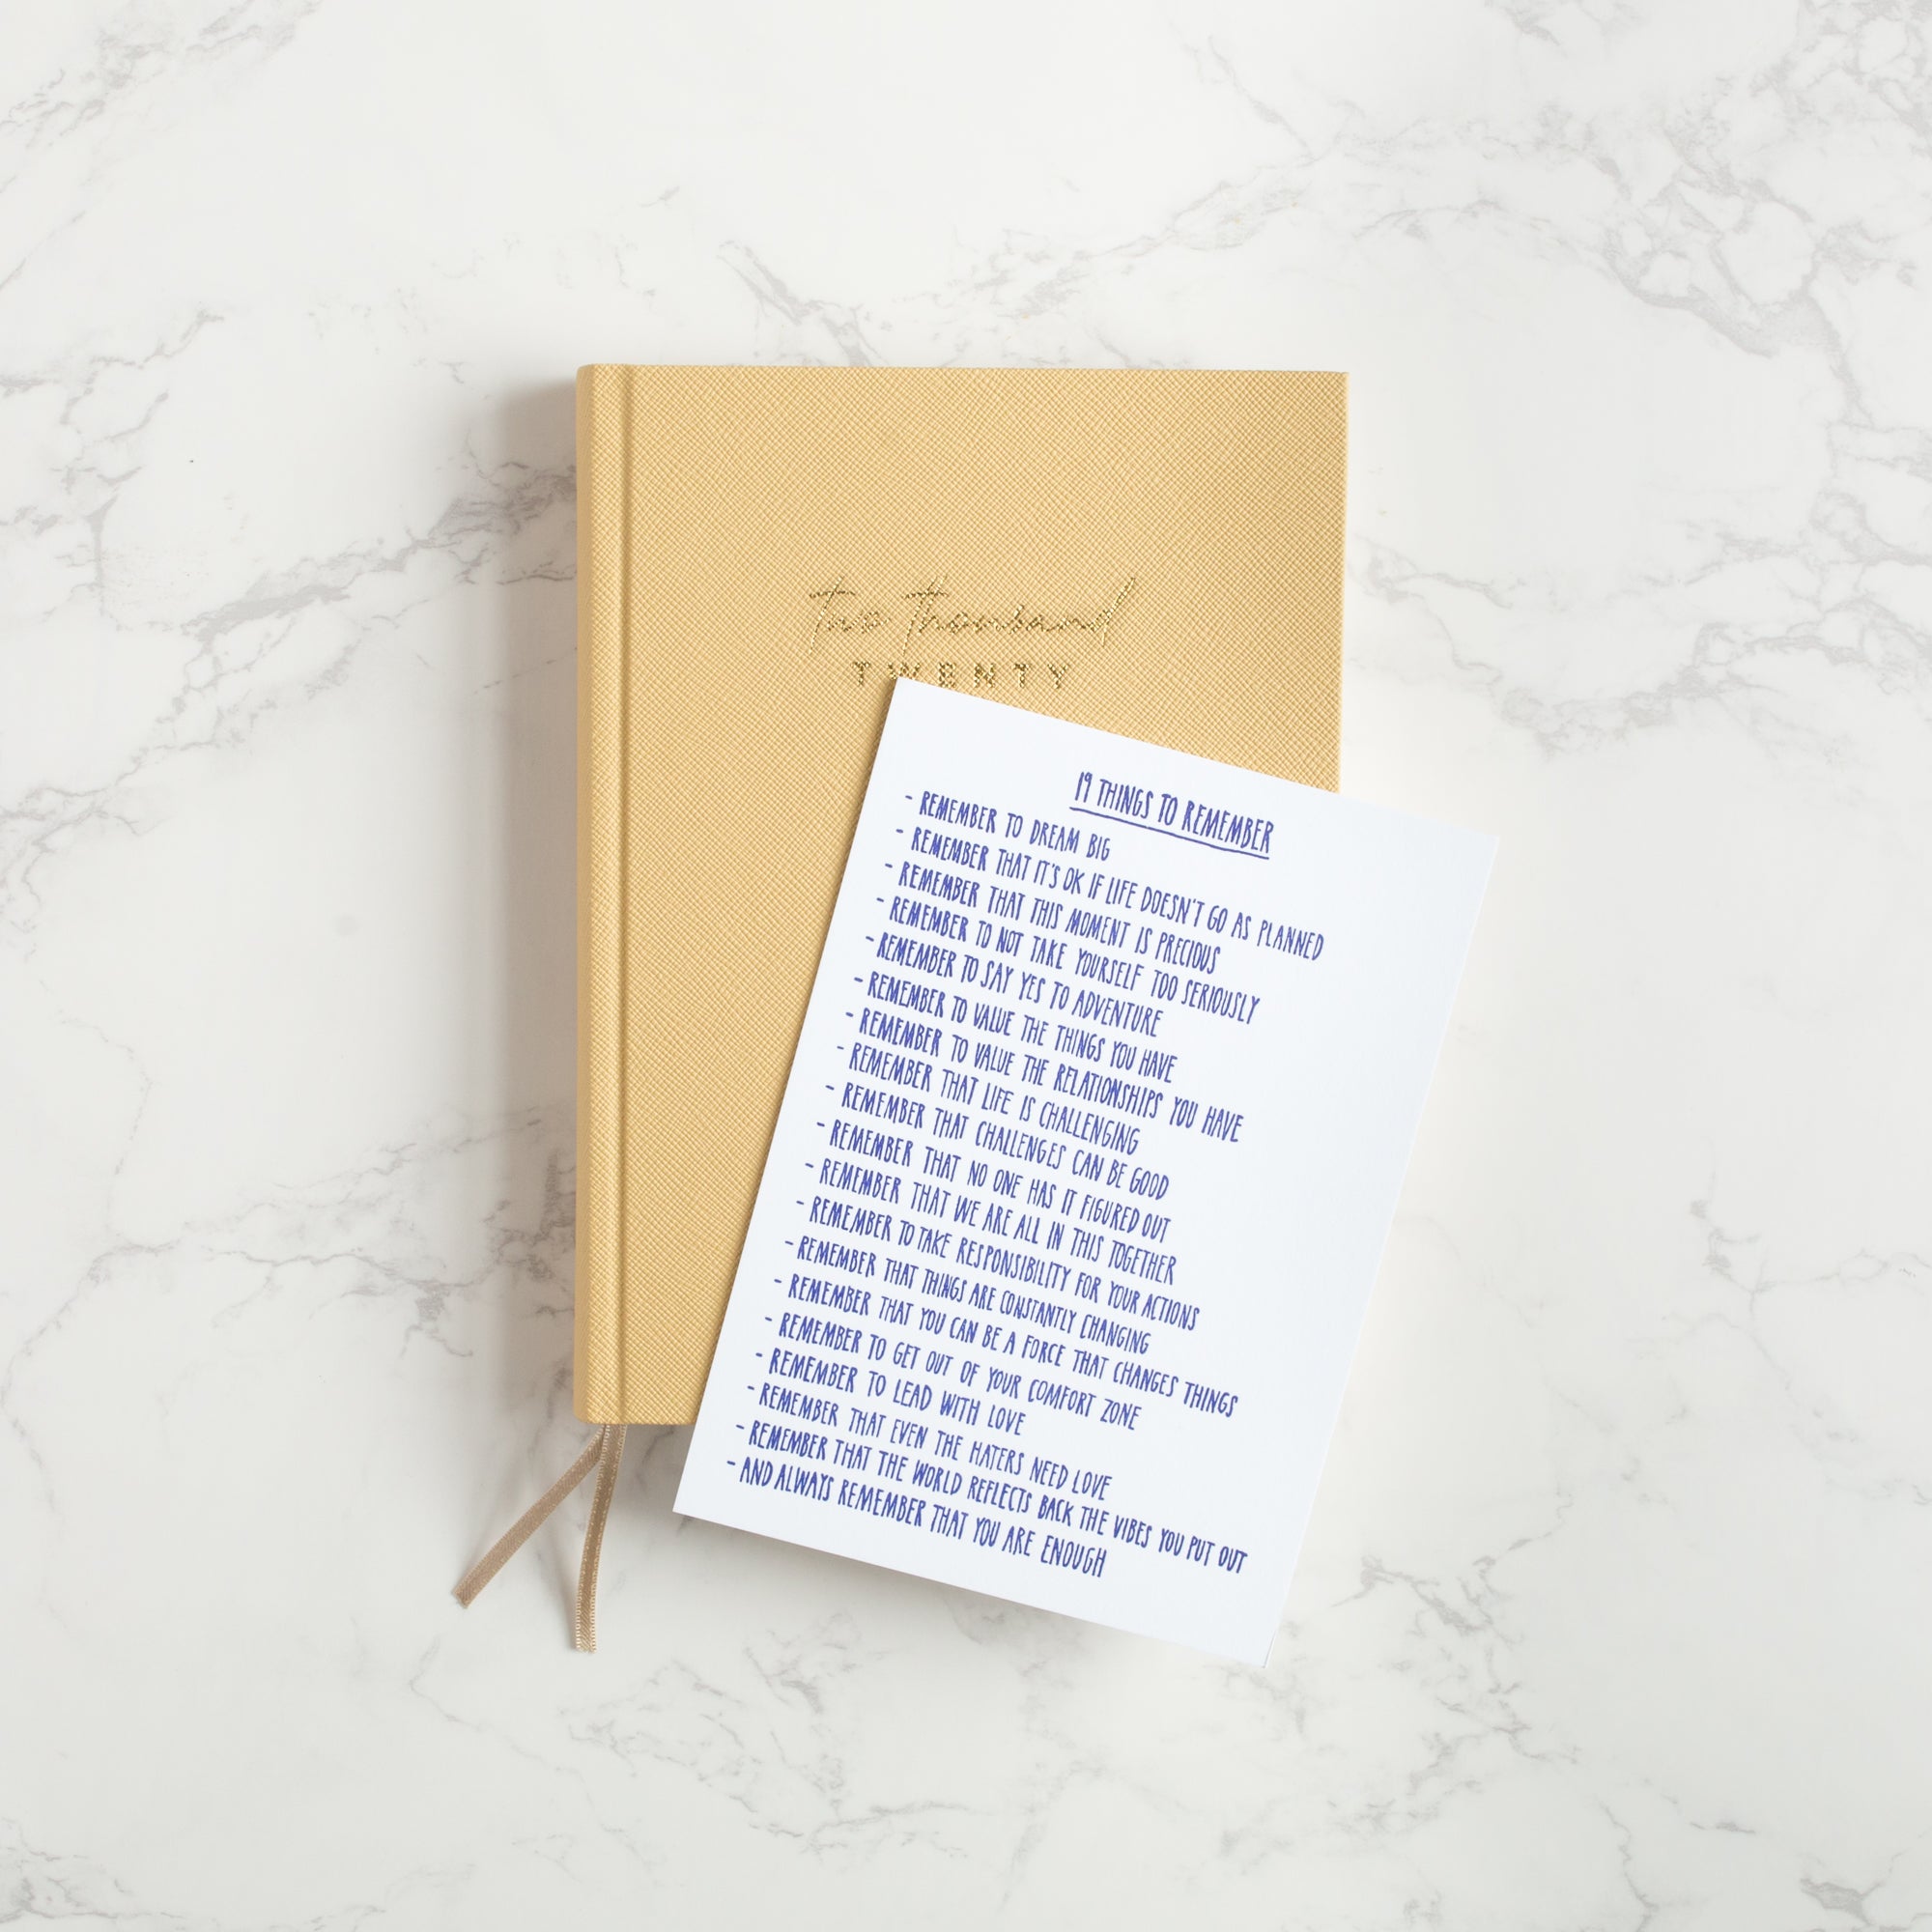 two thousand
TWENTY
19 THINGS TO REMEMBER
- REMEMBER TO DREAM BIG
- REMEMBER THAT IT'S OK IF LIFE DOESN'T GO AS PLANNED
- REMEMBER THAT THIS MOMENT IS PRECIOUS
- REMEMBER TO NOT TAKE YOURSELF TOO SERIOUSLY
- REMEMBER TO SAY YES TO ADVENTURE
- REMEMBER TO VALUE THE THINGS YOU HAVE
- REMEMBER TO VALUE THE RELATIONSHIPS YOU HAVE
- REMEMBER THAT LIFE IS CHALLENGING
- REMEMBER THAT CHALLENGES CAN BE GOOD
- REMEMBER THAT NO ONE HAS IT FIGURED OUT
- REMEMBER THAT WE ARE ALL IN THIS TOGETHER
- REMEMBER TO TAKE RESPONSIBILITY FOR YOUR ACTIONS
- REMEMBER THAT THINGS ARE CONSTANTLY CHANGING
- REMEMBER THAT YOU CAN BE A FORCE THAT CHANGES THINGS
- REMEMBER TO GET OUT OF YOUR COMFORT ZONE
- REMEMBER TO LEAD WITH LOVE
- REMEMBER THAT EVEN THE HATERS NEED LOVE
- REMEMBER THAT THE WORLD REFLECTS BACK THE VIBES YOU PUT OUT
- AND ALWAYS REMEMBER THAT YOU ARE ENOUGH